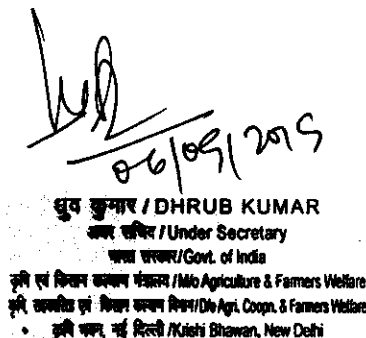 06/09/2019
ध्रुव कुमार / DHRUB KUMAR
अवर सचिव / Under Secretary
भारत सरकार/Govt. of India
कृषि एवं किसान कल्याण मंत्रालय /M/o Agriculture & Farmers Welfare
कृषि, सहकारिता एवं किसान कल्याण विभाग/D/o Agri, Coopn. & Farmers Welfare
कृषि भवन, नई दिल्ली /Krishi Bhawan, New Delhi